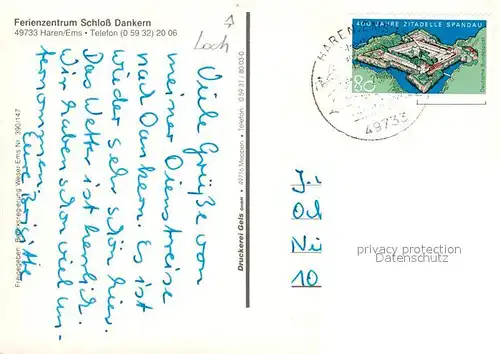 Ferienzentrum Schloß Dankern
49733 Haren/Ems • Telefon (0 59 32) 20 06
Loch
Viele Grüße von
meiner Dienstreise
nach Dankern. Es ist
wieder sehr schön hier.
Das Wetter ist herrlich.
Wir haben schon viel un-
ternommen.
Eure Brigitte
Freigegeben: Bezirksregierung Weser-Ems Nr. 390/147
Druckerei Gels GmbH • 49716 Meppen • Telefon: 0 59 31 / 80 03-0
400 JAHRE ZITADELLE SPANDAU
80
Deutsche Bundespost
HAREN
49733
privacy protection
Datenschutz
10